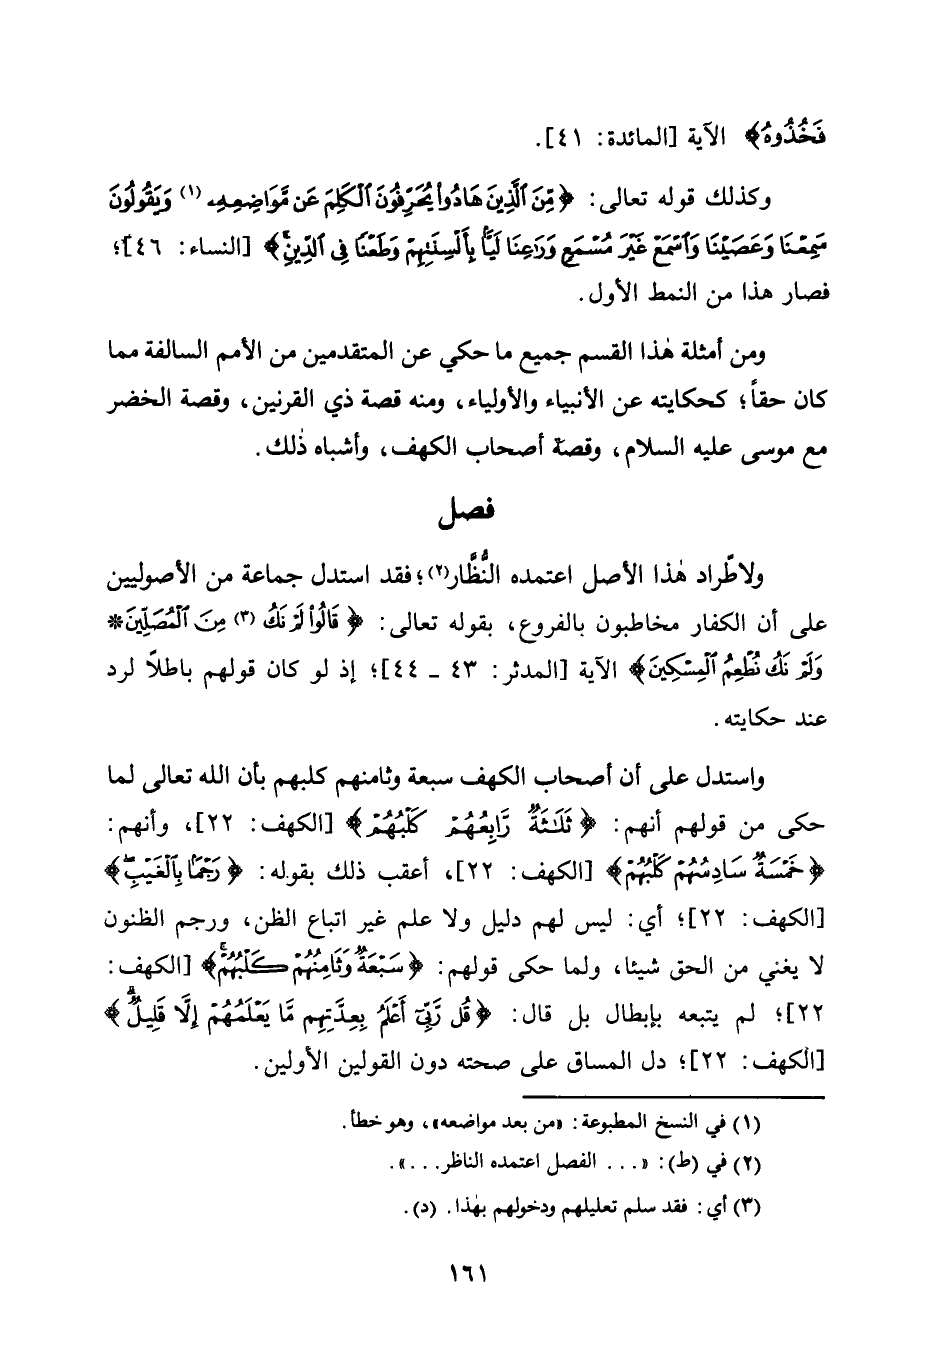 فَخُذُوهُ﴾ الآية [المائدة: ٤١].
وكذلك قوله تعالى: ﴿مِّنَ ٱلَّذِينَ هَادُوا۟ يُحَرِّفُونَ ٱلْكَلِمَ عَن مَّوَاضِعِهِۦ (١) وَيَقُولُونَ
سَمِعْنَا وَعَصَيْنَا وَٱسْمَعْ غَيْرَ مُسْمَعٍ وَرَٰعِنَا لَيًّۢا بِأَلْسِنَتِهِمْ وَطَعْنًا فِى ٱلدِّينِ ۚ﴾ [النساء: ٤٦]؛
فصار هذا من النمط الأول.
ومن أمثلة هٰذا القسم جميع ما حكي عن المتقدمين من الأمم السالفة مما
كان حقاً؛ كحكايته عن الأنبياء والأولياء، ومنه قصة ذي القرنين، وقصة الخضر
مع موسى عليه السلام، وقصة أصحاب الكهف، وأشباه ذٰلك.
فصل
ولاطّراد هٰذا الأصل اعتمده النُّظَّار(٢)؛ فقد استدل جماعة من الأصوليين
على أن الكفار مخاطبون بالفروع، بقوله تعالى: ﴿قَالُوا۟ لَمْ نَكُ (٣) مِنَ ٱلْمُصَلِّينَ*
وَلَمْ نَكُ نُطْعِمُ ٱلْمِسْكِينَ﴾ الآية [المدثر: ٤٣ ـ ٤٤]؛ إذ لو كان قولهم باطلاً لرد
عند حكايته.
واستدل على أن أصحاب الكهف سبعة وثامنهم كلبهم بأن الله تعالى لما
حكى من قولهم أنهم: ﴿ثَلَٰثَةٌ رَّابِعُهُمْ كَلْبُهُمْ﴾ [الكهف: ٢٢]، وأنهم:
﴿خَمْسَةٌ سَادِسُهُمْ كَلْبُهُمْ﴾ [الكهف: ٢٢]، أعقب ذلك بقوله: ﴿رَجْمًۢا بِٱلْغَيْبِ ۖ﴾
[الكهف: ٢٢]؛ أي: ليس لهم دليل ولا علم غير اتباع الظن، ورجم الظنون
لا يغني من الحق شيئا، ولما حكى قولهم: ﴿سَبْعَةٌ وَثَامِنُهُمْ كَلْبُهُمْ ۚ﴾ [الكهف:
٢٢]؛ لم يتبعه بإبطال بل قال: ﴿قُل رَّبِّىٓ أَعْلَمُ بِعِدَّتِهِم مَّا يَعْلَمُهُمْ إِلَّا قَلِيلٌ ۗ﴾
[الكهف: ٢٢]؛ دل المساق على صحته دون القولين الأولين.
(١) في النسخ المطبوعة: «من بعد مواضعه»، وهو خطأ.
(٢) في (ط): «... الفصل اعتمده الناظر...».
(٣) أي: فقد سلم تعليلهم ودخولهم بهٰذا. (د).
١٦١